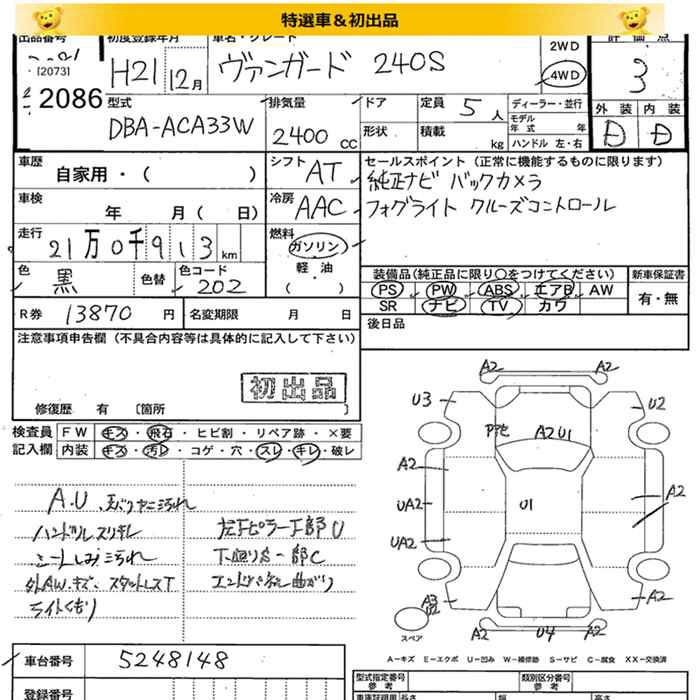 特選車＆初出品
出品番号 初度登録年月 車名・グレード 評価点
H21 12月 ヴァンガード 240S 2WD 4WD 3
[2073]
2086
型式 排気量 ドア 定員 5人 ディーラー・並行 外装 内装
DBA-ACA33W 2400 CC 形状 積載 kg モデル年式 年 ハンドル 左・右 D D
車歴 自家用・( ) シフト AT セールスポイント（正常に機能するものに限ります）
純正ナビ バックカメラ
車検 年 月 ( 日) 冷房 AAC フォグライト クルーズコントロール
走行 21万0千913km 燃料 ガソリン 軽油 ( )
色 黒 色替 色コード 202
装備品（純正品に限り〇をつけてください） 新車保証書
PS PW ABS エアB AW 有・無
SR ナビ TV カワ
R券 13870円 名変期限 月 日 後日品
注意事項申告欄（不具合内容等は具体的に記入して下さい）
初出品
修復歴 有 [箇所 ]
検査員 FW キズ・飛石・ヒビ割・リペア跡・×要
記入欄 内装 キズ・汚れ・コゲ・穴・スレ・キレ・破レ
A.U
ハンドルスリキレ 左下ピラー下部U
シートしみ汚れ 下廻りS一部C
外AWキズ スタットレスT エンドパネル曲がり
ライトくもり
A2 A2
U3 U2
A2 U1
A2 U1 A2
UA2
UA2
A3 A2
スペア A2 U4 A2
A－キズ E－エクボ U－凹み W－補修跡 S－サビ C－腐食 XX－交換済
車台番号 5248148
登録番号
型式指定番号 参考 類別区分番号 参考